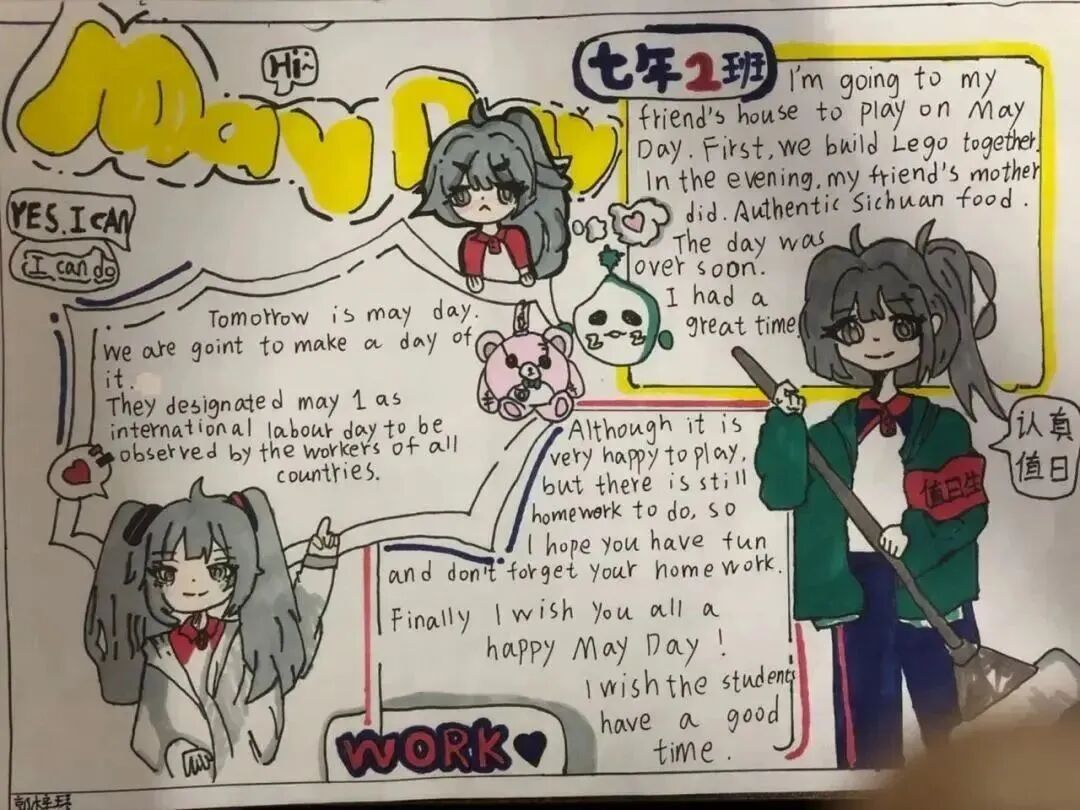 May Day
Hi~
七年2班
YES.I CAN
I can do
I'm going to my
friend's house to play on May
Day. First, we build Lego together.
In the evening, my friend's mother
did. Authentic Sichuan food.
The day was
over soon.
I had a
great time
Tomorrow is may day.
we are goint to make a day of
it.
They designated may 1 as
international labour day to be
observed by the workers of all
countries.
Although it is
very happy to play,
but there is still
homework to do, so
I hope you have fun
and don't forget your home work.
Finally I wish you all a
happy May Day!
I wish the students
have a good
time.
认真
值日
值日生
WORK